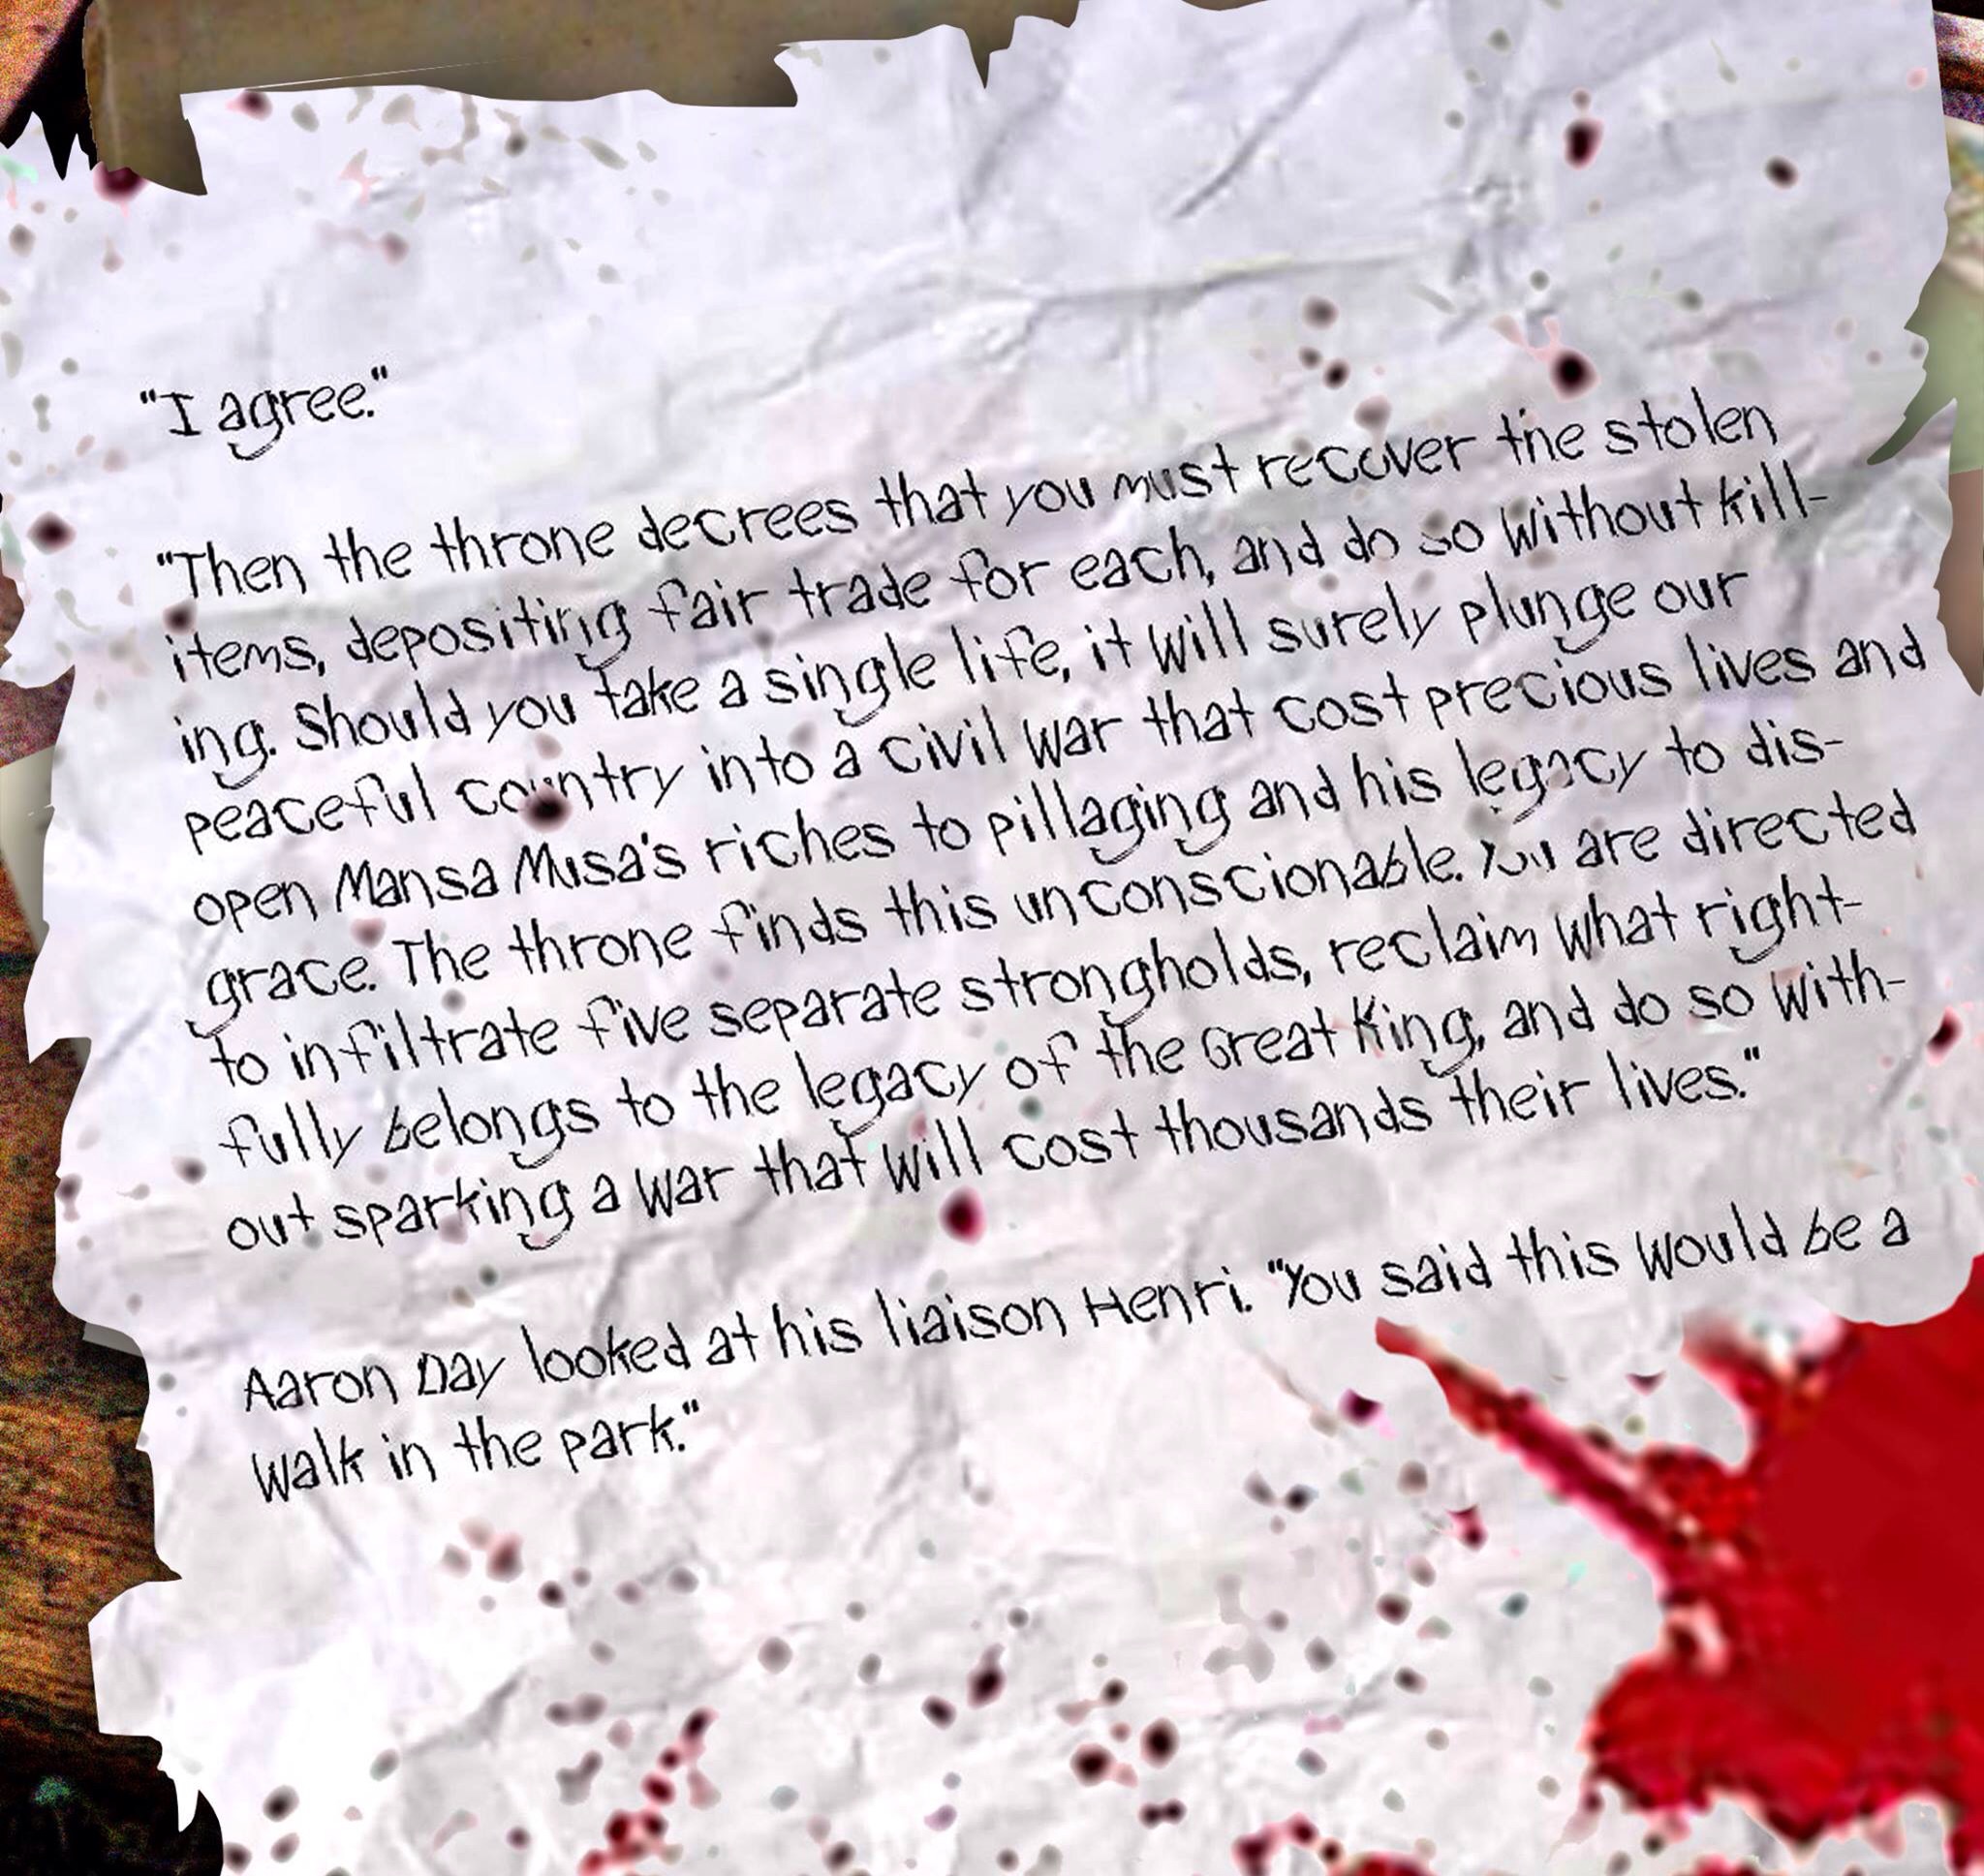 "I agree."
"Then the throne decrees that you must recover the stolen
items, depositing fair trade for each, and do so without kill-
ing. Should you take a single life, it will surely plunge our
peaceful country into a civil war that cost precious lives and
open Mansa Musa's riches to pillaging and his legacy to dis-
grace. The throne finds this unconscionable. You are directed
to infiltrate five separate strongholds, reclaim what right-
fully belongs to the legacy of the Great King, and do so with-
out sparking a war that will cost thousands their lives."
Aaron Day looked at his liaison Henri. "You said this would be a
walk in the park."